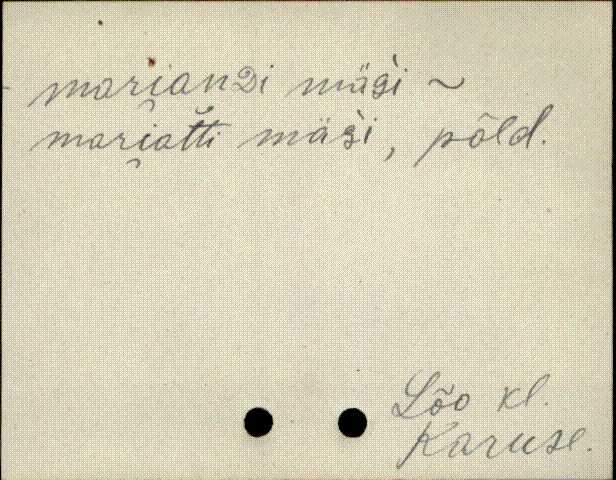 mari̯anDi mäɢ̀i ~
mari̯at̆ti mäɢ̀i, põld.
Lõo kl.
Karuse.